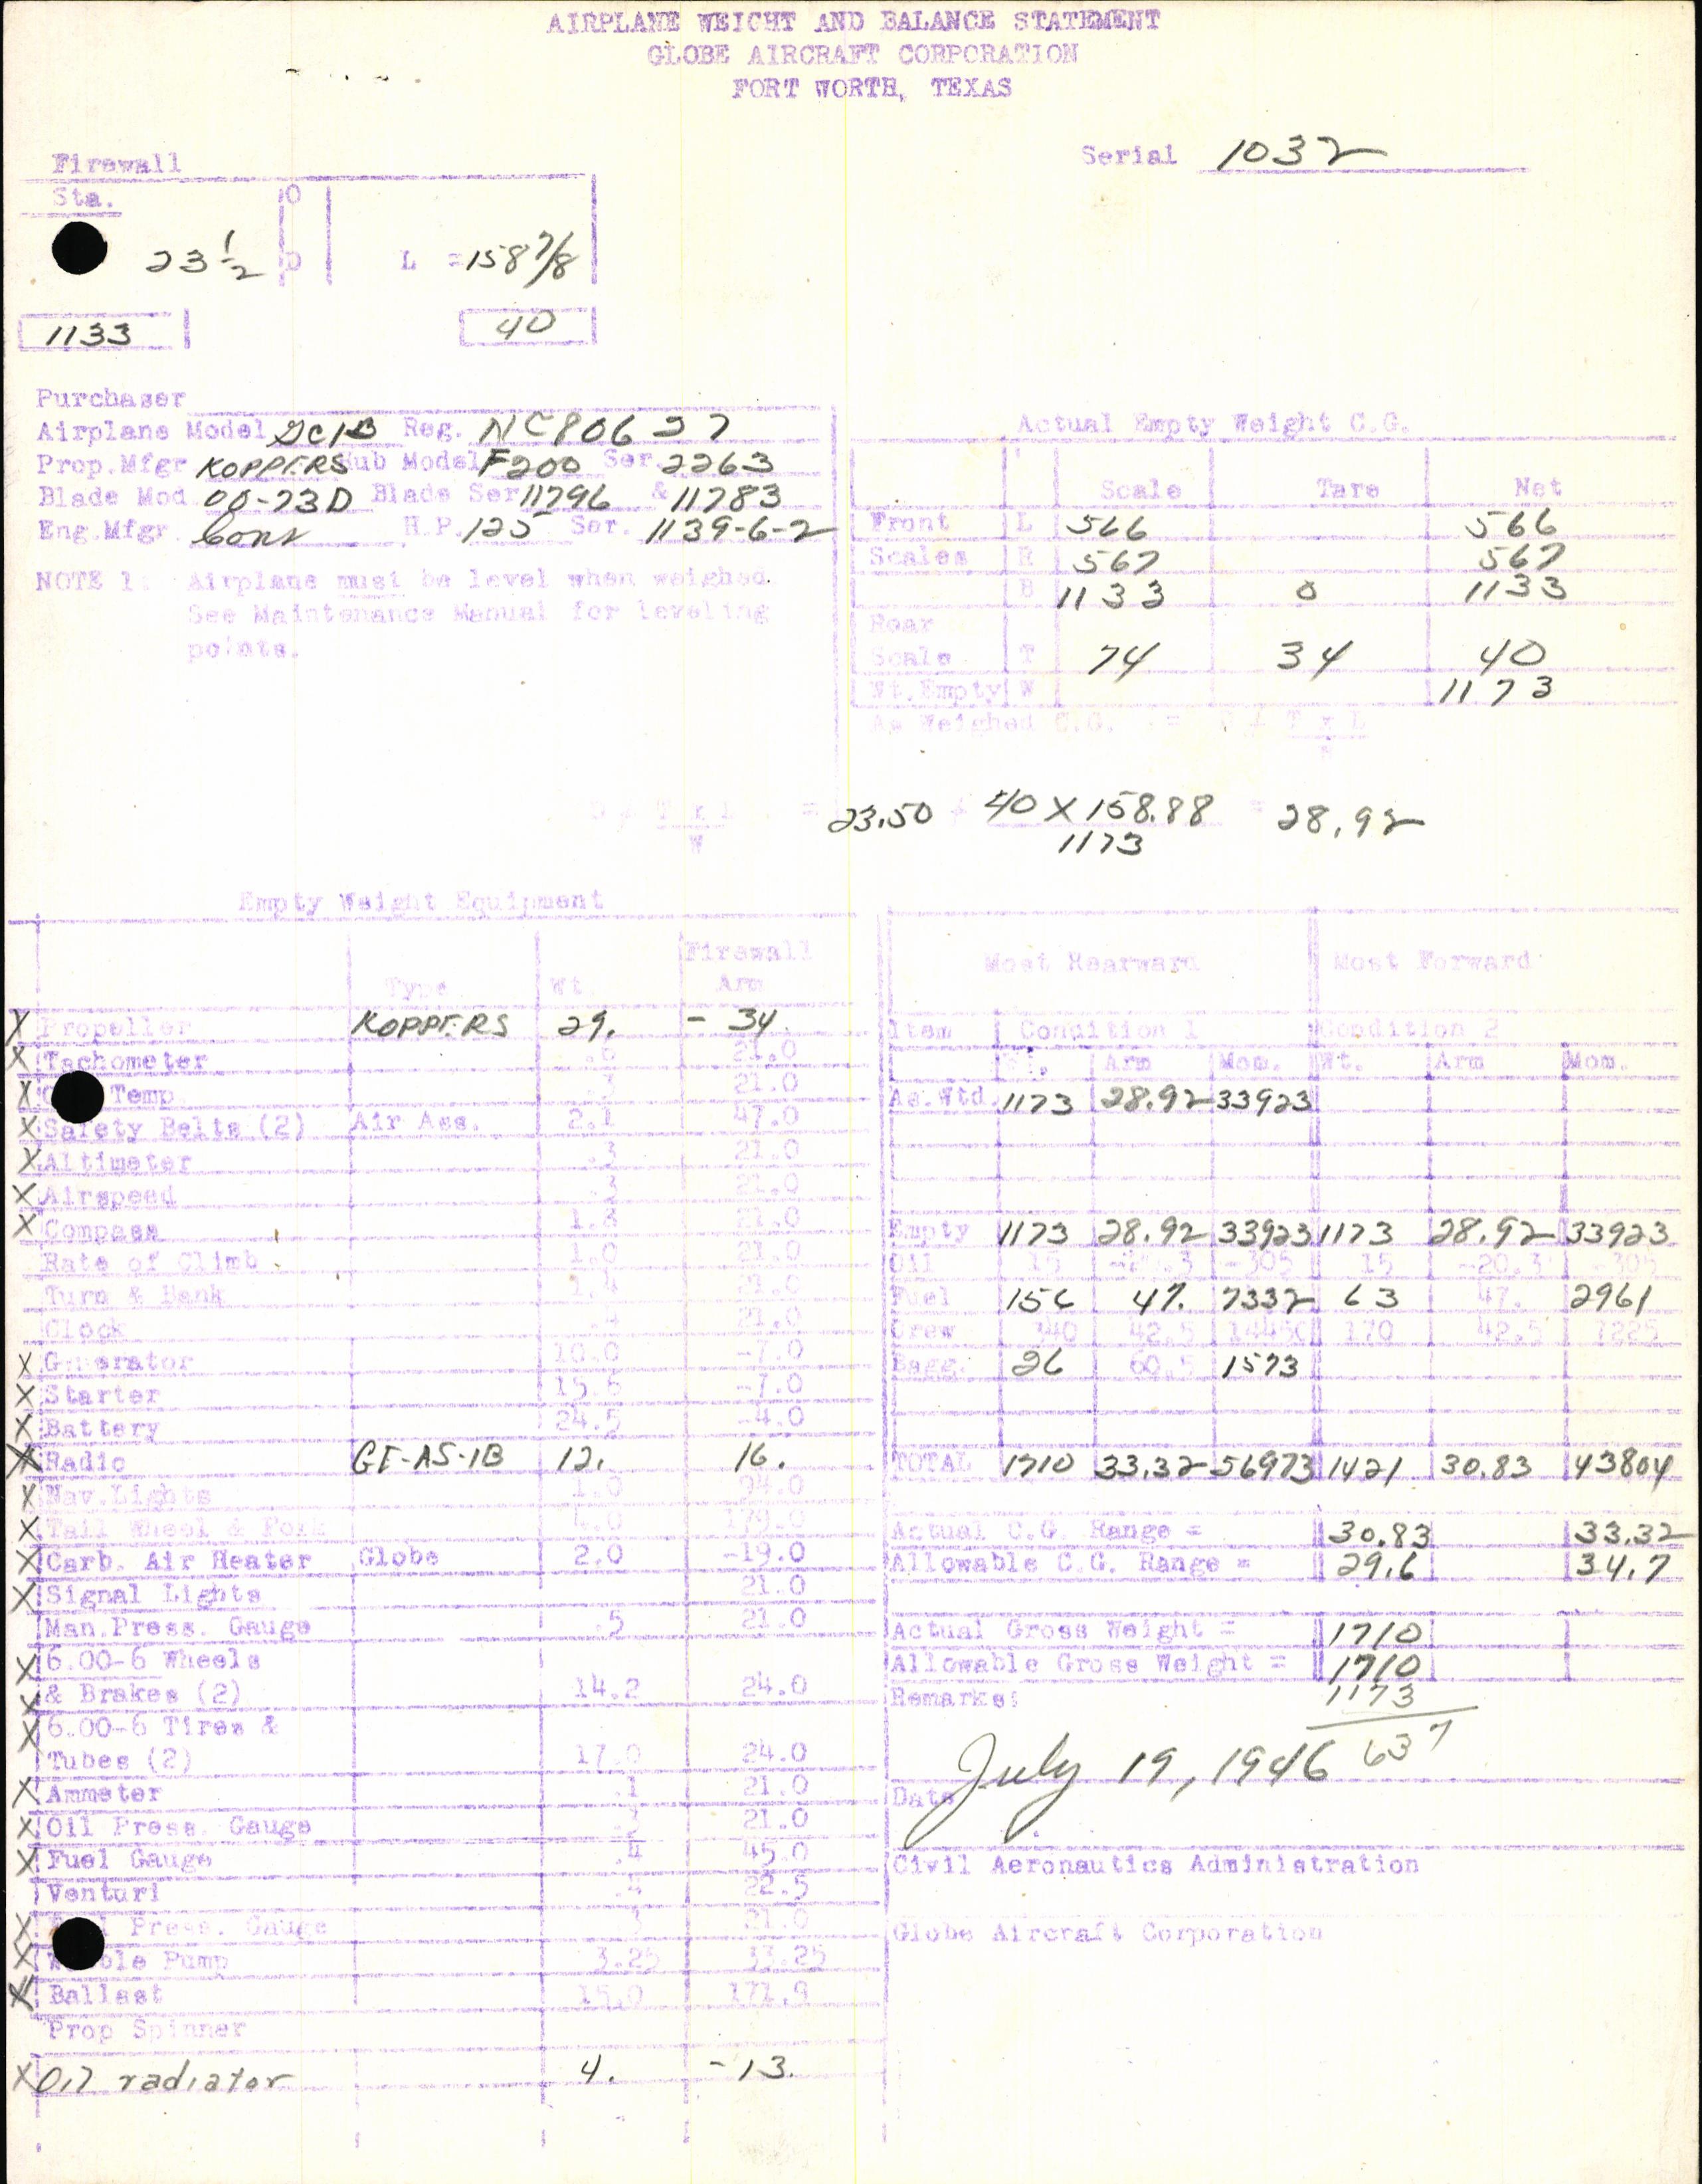 AIRPLANE WEIGHT AND BALANCE STATEMENT
GLOBE AIRCRAFT CORPORATION
FORT WORTH, TEXAS
Serial 1032
Firewall
Sta.
23 1/2 L = 158 7/8
1133 40
Purchaser
Airplane Model GC1B Reg. NC80627
Prop.Mfgr KOPPERS Hub Model F200 Ser. 2263
Blade Mod 00-73D Blade Ser 11796 & 11783
Eng.Mfgr. Cont H.P. 125 Ser. 1139-6-2
NOTE 1: Airplane must be level when weighed.
See Maintenance Manual for leveling
points.
Actual Empty Weight C.G.
Scale Tare Net
Front L 566 566
Scales R 567 567
B 1133 0 1133
Rear
Scale T 74 34 40
Wt.Empty W 1173
As Weighed C.G. = D + T x L
W
D + T x L = 23.50 + 40 X 158.88 = 28.92
W 1173
Empty Weight Equipment
Type Wt. Firewall Arm
X Propeller KOPPERS 29. - 34.
X Tachometer .8 21.0
X Temp .3 21.0
X Safety Belts (2) Air Acs. 2.1 47.0
X Altimeter .3 21.0
X Airspeed .3 21.0
X Compass 1.3 21.0
Rate of Climb 1.0 21.0
Turn & Bank 1.4 21.0
Clock .4 21.0
X Generator 10.0 -7.0
X Starter 15.6 -7.0
X Battery 24.5 -4.0
X Radio GE-AS-1B 12. 16.
X Nav.Lights 1.0 94.0
X Tail Wheel & Fork 4.0 179.0
X Carb. Air Heater Globe 2.0 -19.0
X Signal Lights 21.0
Man.Press. Gauge .5 21.0
X 6.00-6 Wheels
X & Brakes (2) 14.2 24.0
X 6.00-6 Tires &
Tubes (2) 17.0 24.0
X Ammeter .1 21.0
X Oil Press. Gauge .3 21.0
X Fuel Gauge .4 45.0
Venturi .4 22.5
X Press. Gauge .3 21.0
X Pump 3.25 13.25
X Ballast 15.0 171.9
Prop Spinner
X Oil radiator 4. -13.
Most Rearward Most Forward
Item Condition 1 Condition 2
Wt. Arm Mom. Wt. Arm Mom.
As.Wtd. 1173 28.92 33923
Empty 1173 28.92 33923 1173 28.92 33923
Oil 15 -20.3 -305 15 -20.3 -305
Fuel 156 47. 7332 63 47. 2961
Crew 340 42.5 14450 170 42.5 7225
Bagg. 26 60.5 1573
TOTAL 1710 33.32 56973 1421 30.83 43804
Actual C.G. Range = 30.83 33.32
Allowable C.G. Range = 29.6 34.7
Actual Gross Weight = 1710
Allowable Gross Weight = 1710
Remarks: 1173
637
Date July 19, 1946
Civil Aeronautics Administration
Globe Aircraft Corporation